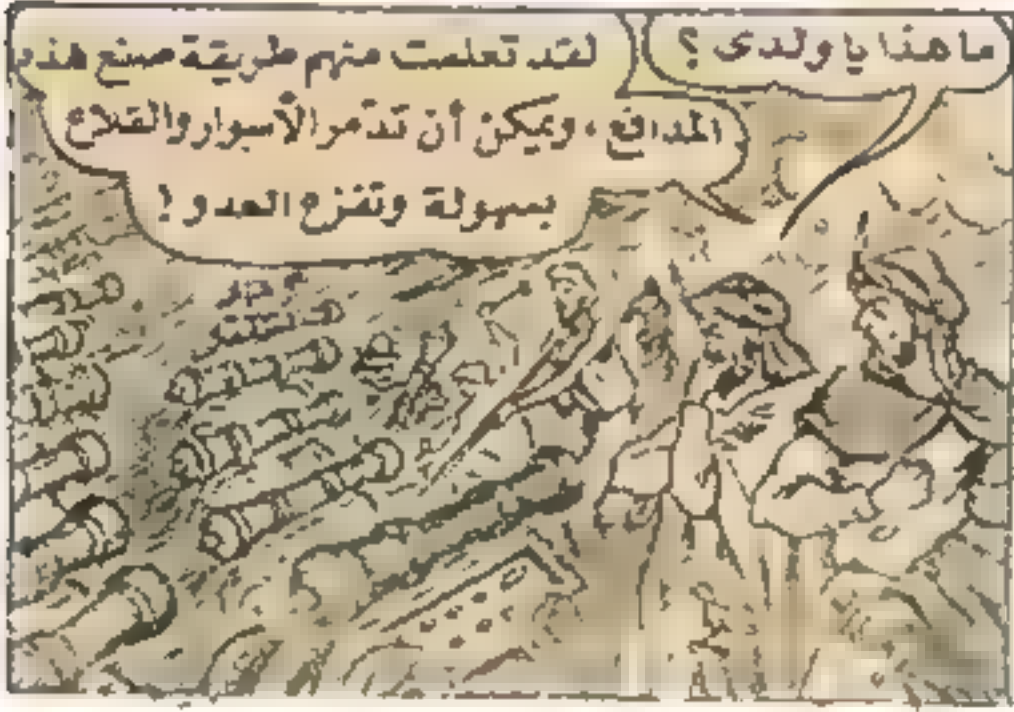 ما هذا يا ولدى ؟
لقد تعلمت منهم طريقة صنع هذه
المدافع ، ويمكن أن تدمر الأسوار والقلاع
بسهولة وتفزع العدو !